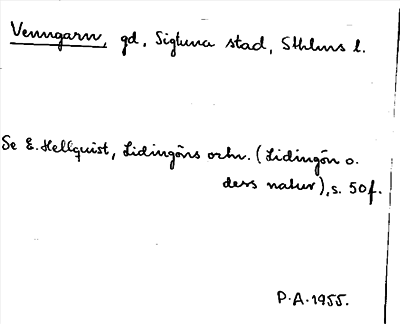 Venngarn, gd, Sigtuna stad, Sthlms l.
Se E. Hellquist, Lidingöns ortn. (Lidingön o.
dess natur), s. 50 f.
P.A. 1955.